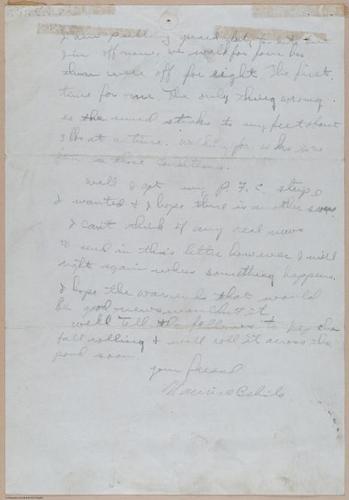 I am pulling guard
off now. we walk for four hrs
then were off for eight. The first
time for me. The only thing wrong
is the mud sticks to my feet about
at a time.
in these conditions.
Well I got my P.F.C. stripe
I wanted & I hope there is another soon.
I cant think of any real news
to send in this letter however I will
right again when something happens.
I hope the war ends that would
be good news wouldn't it
well tell the fellows to keep the
ball rolling & I will roll it across the
pond soon
your friend